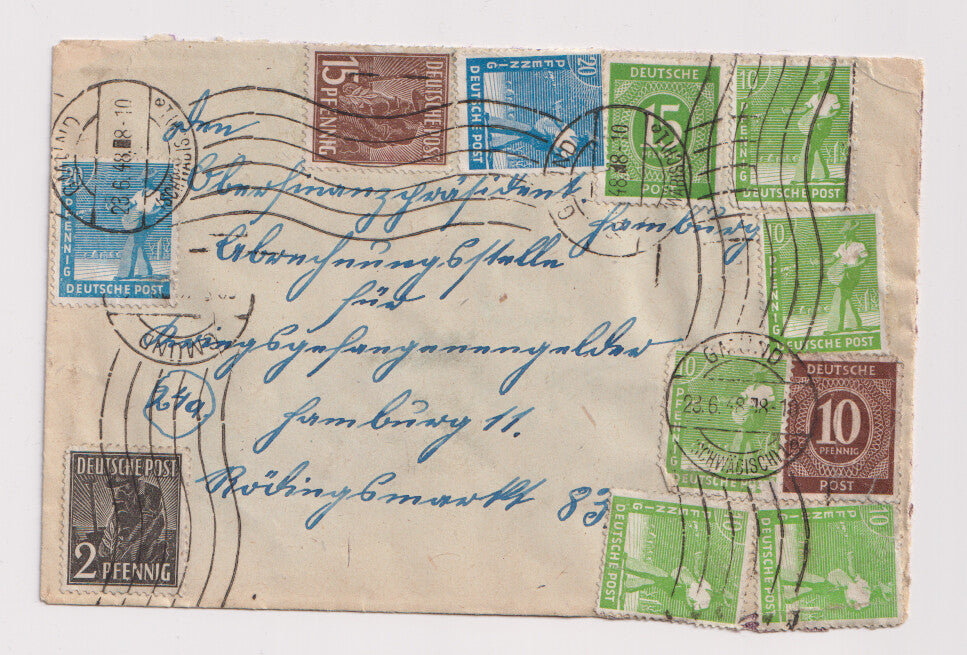 15 PFENNIG
DEUTSCHE POST
20 PFENNIG
DEUTSCHE POST
DEUTSCHE
15
PFENNIG
POST
10 PFENNIG
DEUTSCHE POST
GMÜND
23.6.48.18-10
SCHWÄBISCH
PFENNIG
DEUTSCHE POST
GMÜND
den
Oberfinanzpräsident
Hamburg
Abrechnungsstelle
für
Kriegsgefangenengelder
Hamburg 11.
Rödingsmarkt 83
10 PFENNIG
DEUTSCHE POST
10 PFENNIG
DEUTSCHE POST
GMÜND
23.6.48.18-10
SCHWÄBISCH
DEUTSCHE
10
PFENNIG
POST
DEUTSCHE POST
2 PFENNIG
10 PFENNIG
DEUTSCHE POST
10 PFENNIG
DEUTSCHE POST